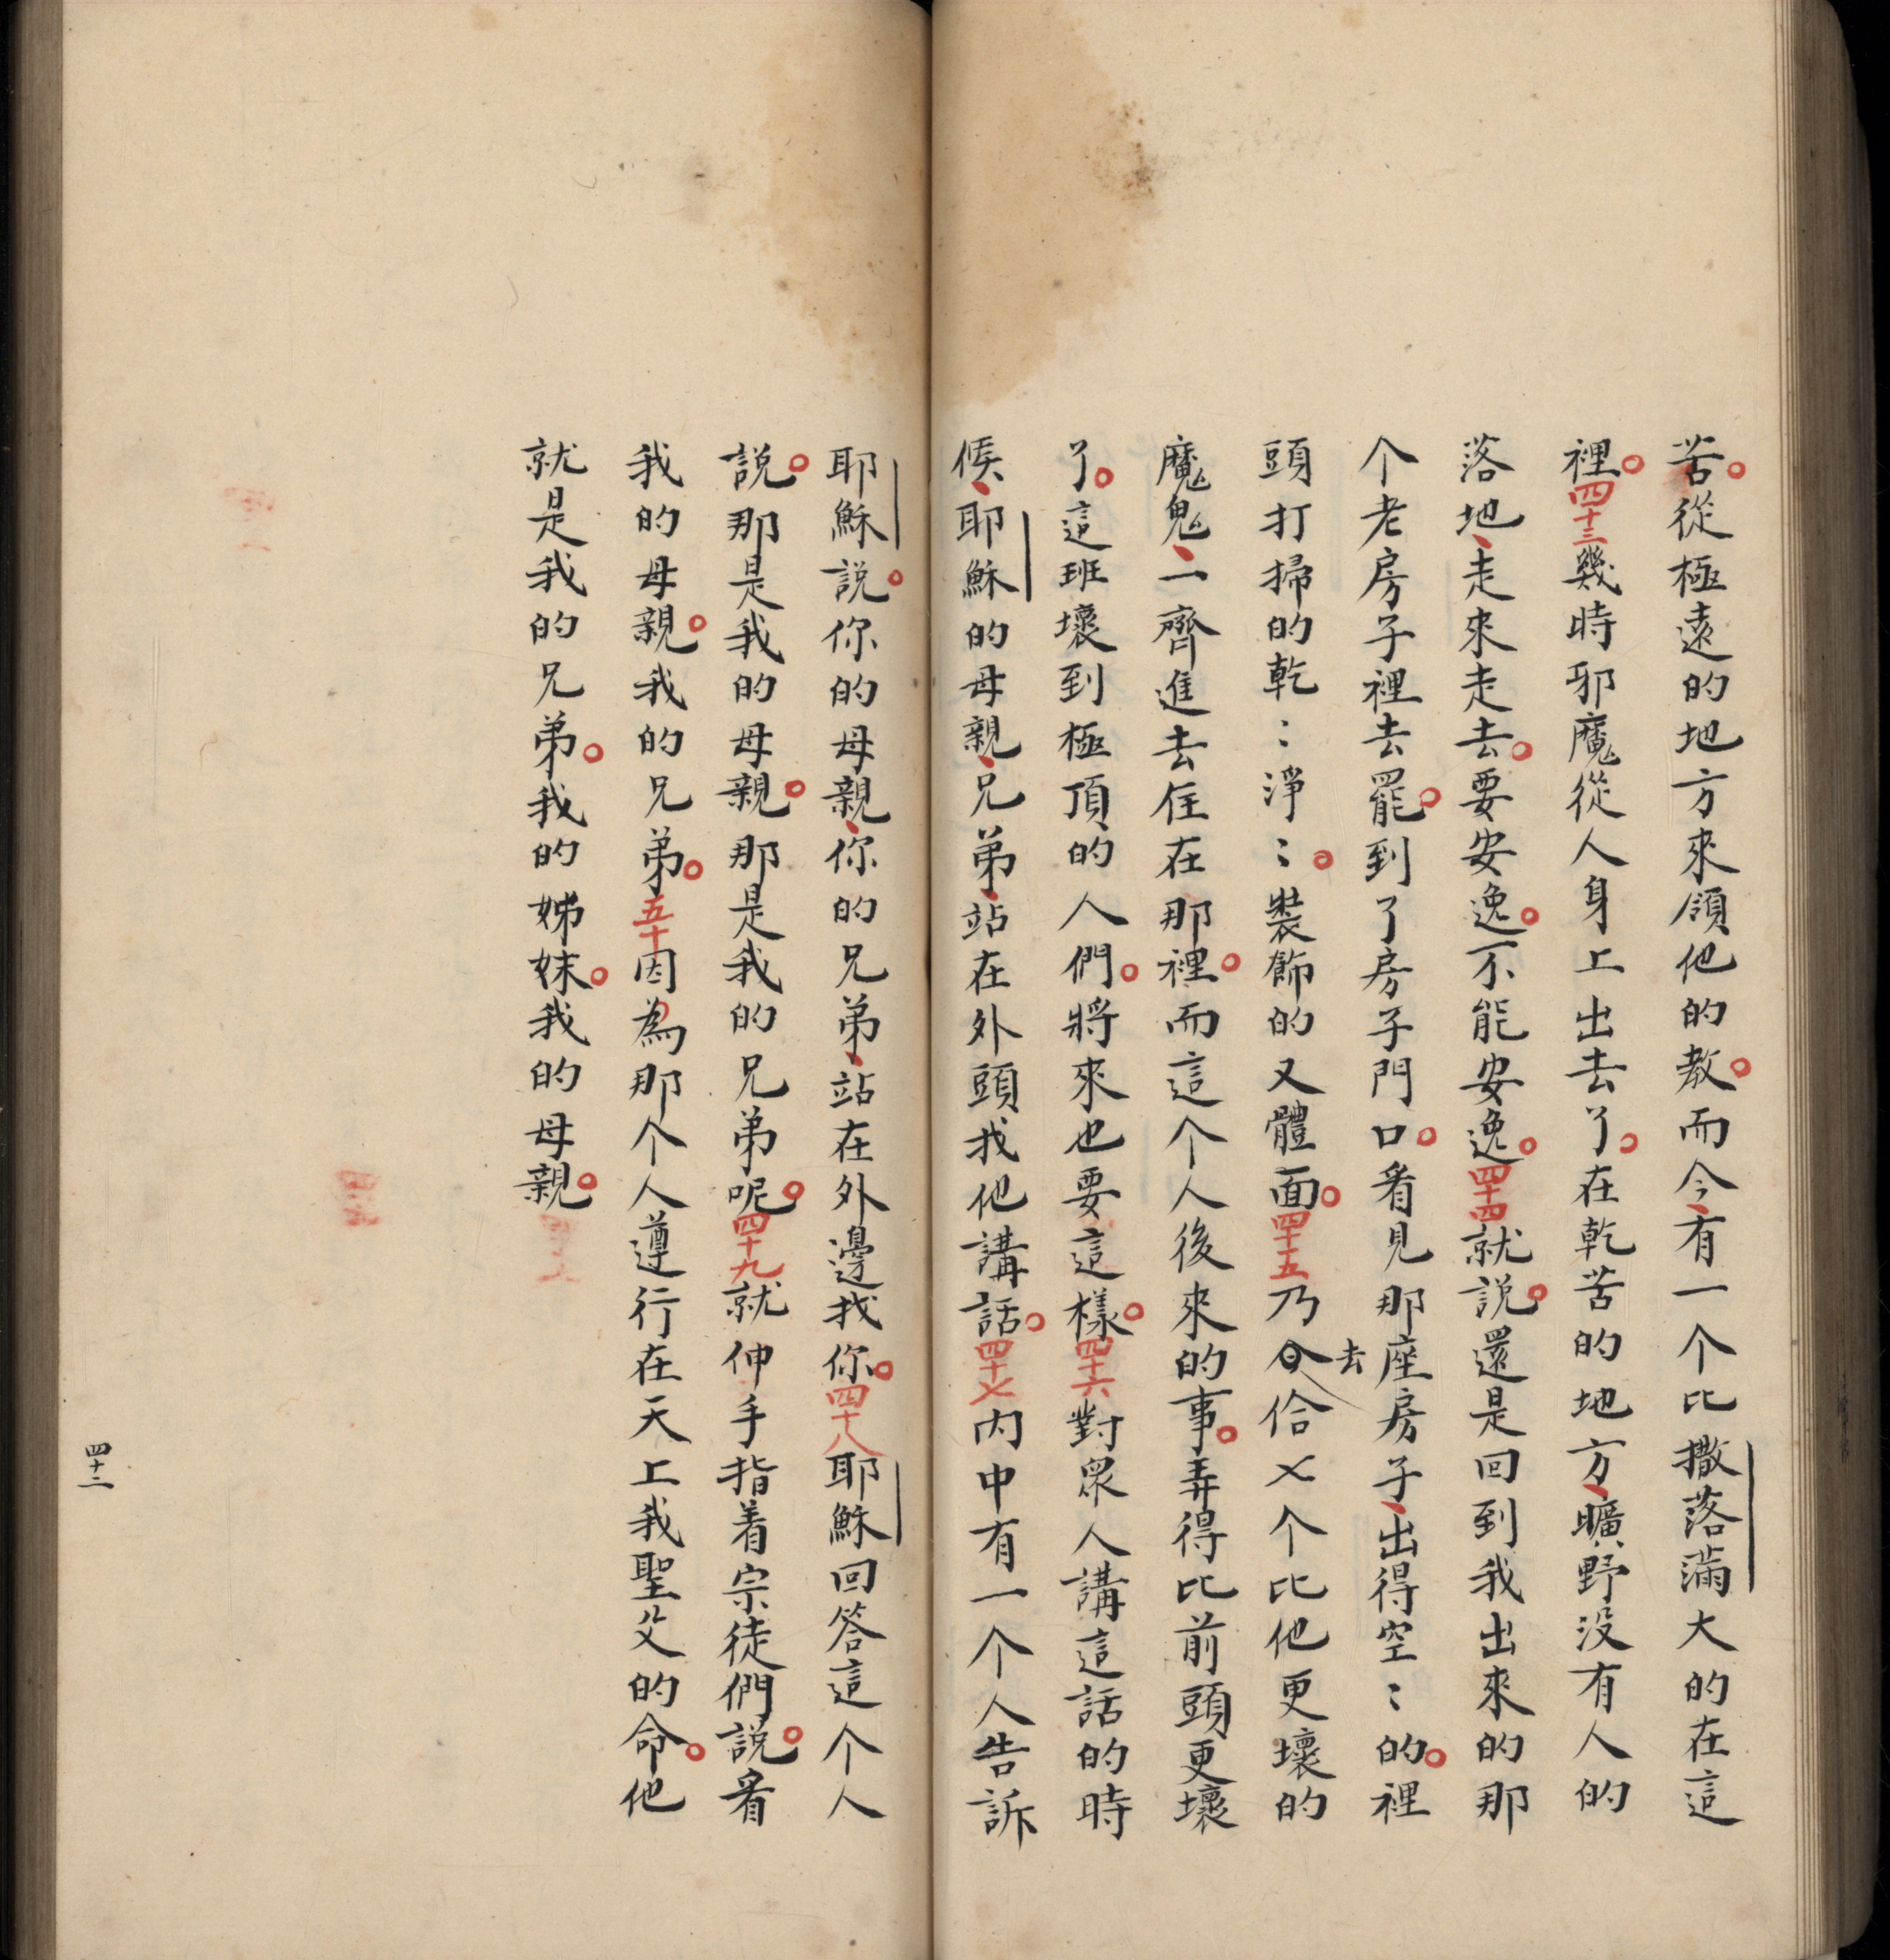 苦。從極遠的地方來領他的教。而今、有一个比撒落滿大的在這
裡。四十三幾時邪魔從人身上出去了。在乾苦的地方、曠野没有人的
落地、走來走去。要安逸。不能安逸。四十四就説。還是回到我出來的那
个老房子裡去罷。到了房子門口。看見那座房子、出得空〻的。裡
頭打掃的乾〻淨〻。裝飾的又體面。四十五乃㑹去佮〤个比他更壞的
魔鬼、一齊進去住在那裡。而這个人後來的事。弄得比前頭更壞
了。這班壞到極頂的人們。將來也要這樣。四十六對眾人講這話的時
候、耶穌的母親、兄弟、站在外頭找他講話。四十〤内中有一个人告訴
耶穌説。你的母親、你的兄弟、站在外邊找你。四十八耶穌回答這个人
説。那是我的母親。那是我的兄弟呢。四十九就伸手指着宗徒們説。看
我的母親。我的兄弟。五十因為那个人遵行在天上我聖父的命。他
就是我的兄弟。我的姊妹。我的母親。
四十二